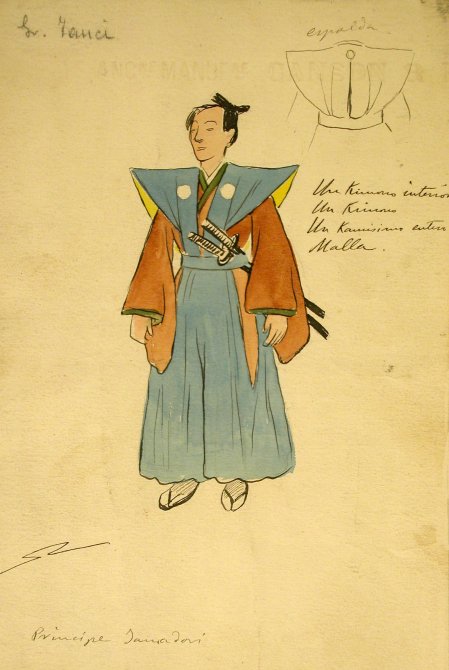 Sr. Zanci
espalda
Un Kimono interior
Un Kimono
Un Kamisimo enter
Malla.
Principe Jamadori